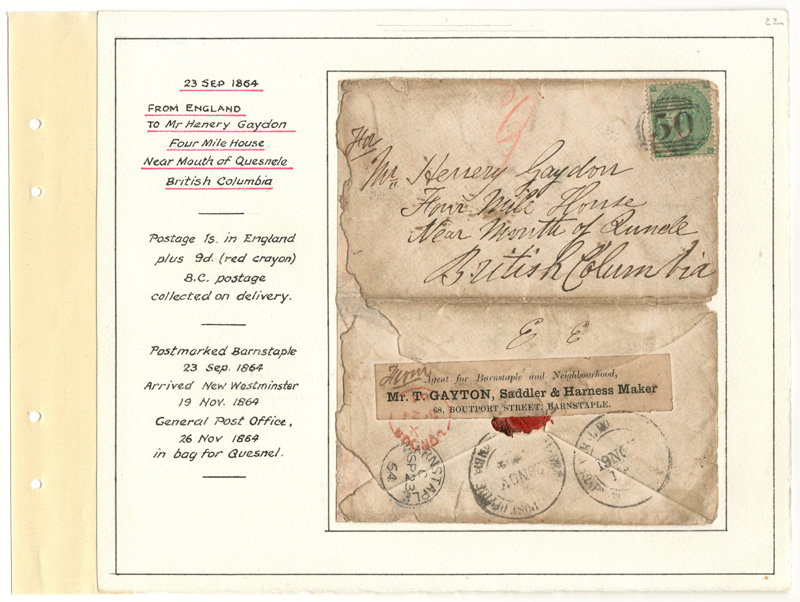 22
23 SEP 1864
FROM ENGLAND
TO Mr HENERY GAYDON
FOUR MILE HOUSE
NEAR MOUTH OF QUESNELE
BRITISH COLUMBIA
POSTAGE 1s. IN ENGLAND
PLUS 9d. (RED CRAYON)
B.C. POSTAGE
COLLECTED ON DELIVERY.
POSTMARKED BARNSTAPLE
23 SEP. 1864
ARRIVED NEW WESTMINSTER
19 NOV. 1864
GENERAL POST OFFICE,
26 NOV 1864
IN BAG FOR QUESNEL.
9
50
For
Mr. Henery Gaydon
Four Mile House
Near Mouth of
British Columbia
E E
From
Agent for Barnstaple and Neighbourhood,
Mr. T. GAYTON, Saddler & Harness Maker
68, BOUTPORT STREET, BARNSTAPLE.
LONDON
BARNSTAPLE
C
SP 23
64
POST OFFICE